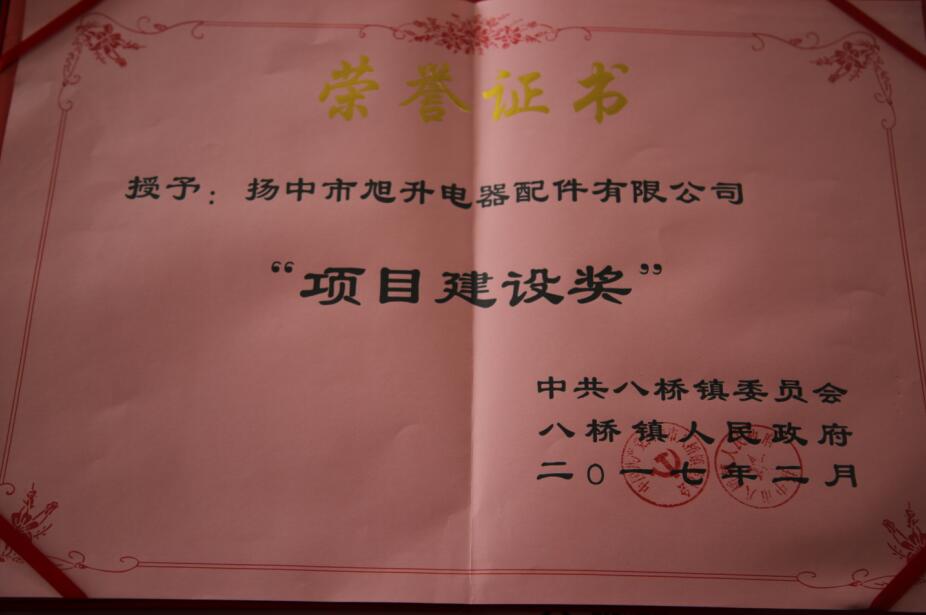 荣誉证书
授予：扬中市旭升电器配件有限公司
“项目建设奖”
中共八桥镇委员会
八桥镇人民政府
二0一七年二月